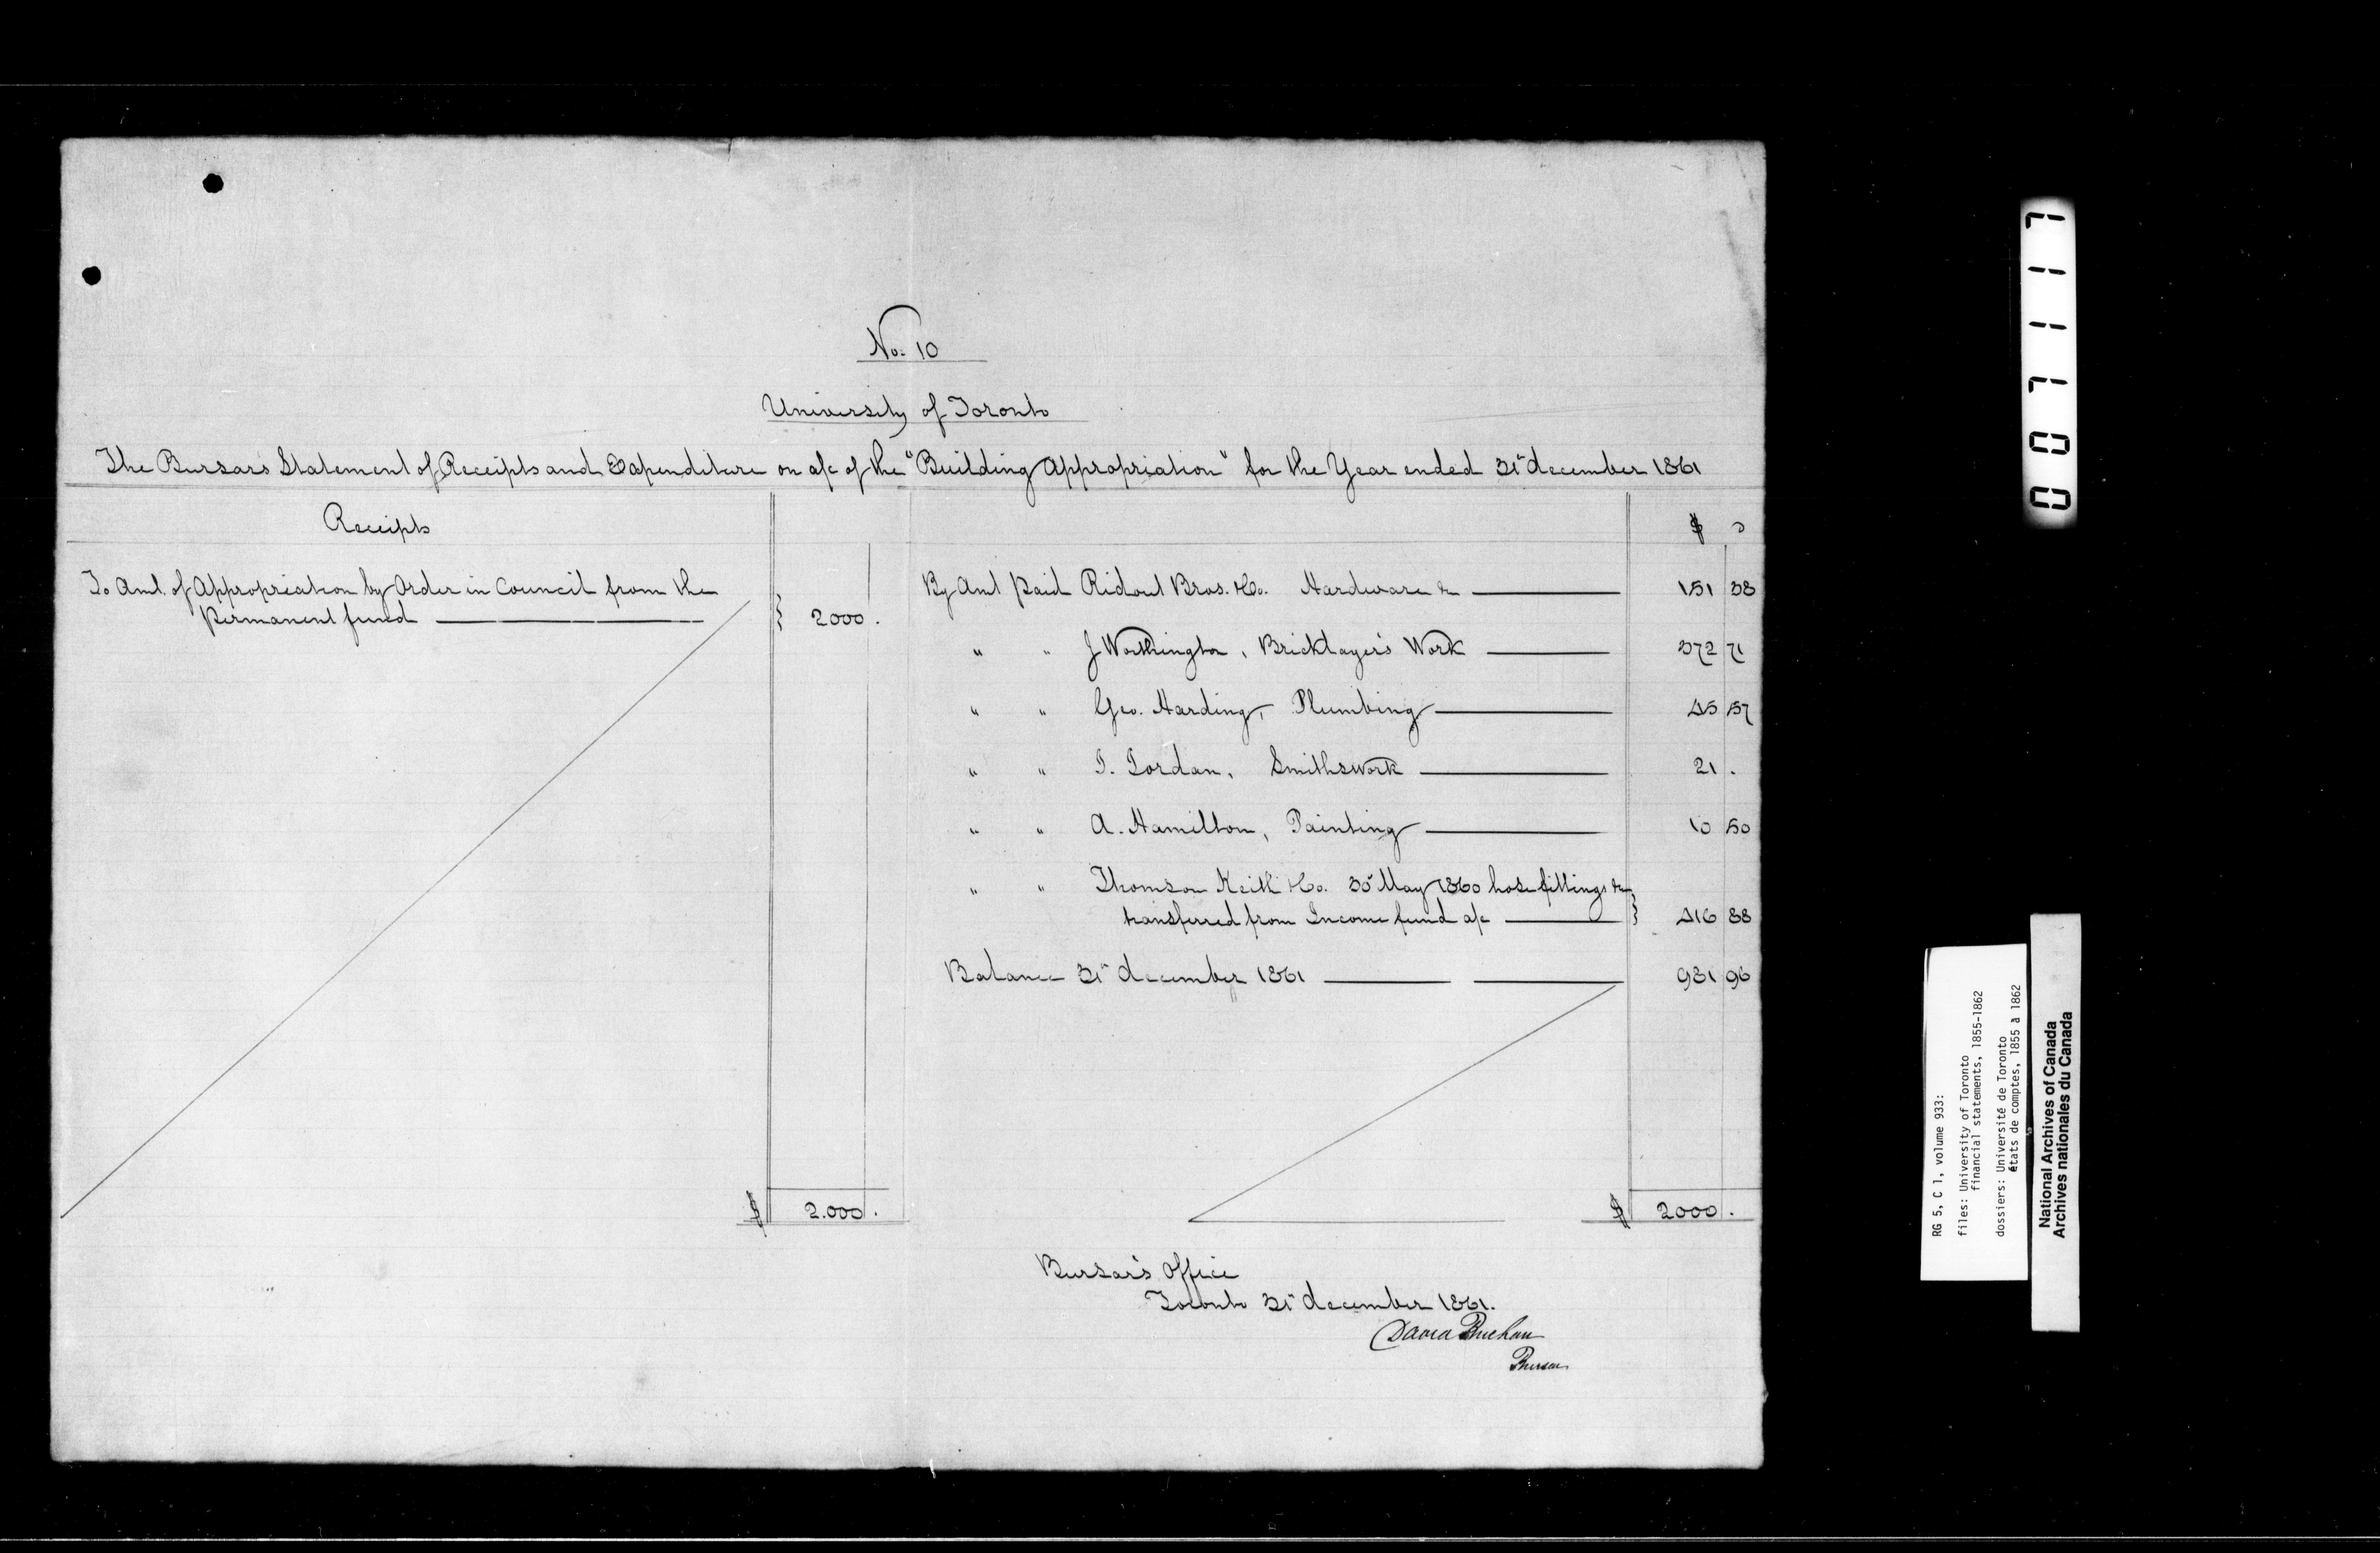 No. 10
University of Toronto
The Bursar's Statement of Receipts and Expenditure on a/c of the "Building Appropriation" for the Year ended 31st december 1861
Receipts
To Amt. of Appropriation by Order in Council from the
Permanent fund 2000.
$ 2.000.
$ c
By Amt paid Ridout Bros. & Co. Hardware &c 151 38
" " J Worthington, Bricklayer's Work 372 71
" " Geo. Harding, Plumbing 45 57
" " I. Iordan, Smithswork 21 .
" " A. Hamilton, Painting 10 50
" " Thomson Keith & Co. 30 May 1860 hose fittings &c
transferred from Income fund a/c 416 88
Balance 31st december 1861 981 96
$ 2000.
Bursar's Office
Toronto 31st december 1861.
David Buchan
Bursar
0071117
RG 5, C 1, volume 933:
files: University of Toronto
financial statements, 1855-1862
dossiers: Université de Toronto
états de comptes, 1855 à 1862
National Archives of Canada
Archives nationales du Canada